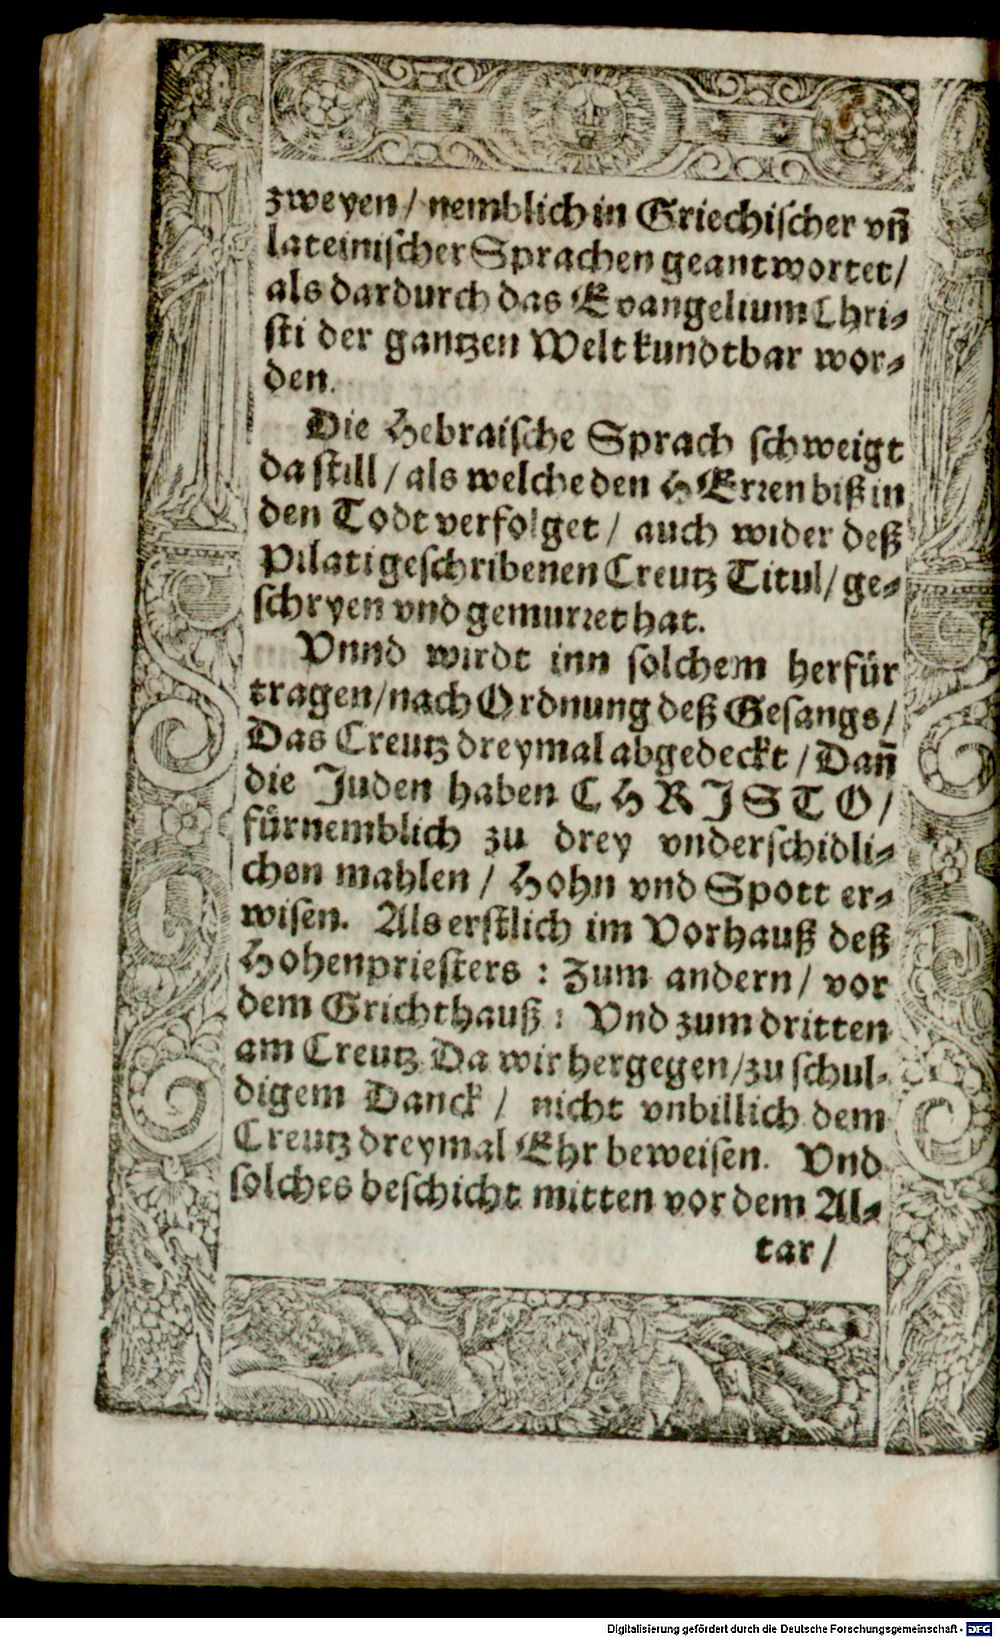 zweyen / nemblich in Griechiſcher vñ
lateiniſcher Sprachen geantwortet /
als dardurch das Evangelium Chri⸗
ſti der gantzen Welt kundtbar wor⸗
den.
Die Hebraiſche Sprach ſchweigt
da ſtill / als welche den HErꝛen biß in
den Todt verfolget / auch wider deß
Pilati geſchribenen Creutz Titul / ge⸗
ſchryen vnd gemurꝛet hat.
Vnnd wirdt inn ſolchem herfür
tragen / nach Ordnung deß Geſangs /
Das Creutz dreymal abgedeckt / Dañ
die Juden haben CHRISTO /
fürnemblich zu drey vnderſchidli⸗
chen mahlen / Hohn vnd Spott er⸗
wiſen. Als erſtlich im Vorhauß deß
Hohenprieſters : Zum andern / vor
dem Grichthauß : Vnd zum dritten
am Creutz. Da wir hergegen / zu ſchul⸗
digem Danck / nicht vnbillich dem
Creutz dreymal Ehr beweiſen. Vnd
ſolches beſchicht mitten vor dem Al⸗
tar /
Digitalisierung gefördert durch die Deutsche Forschungsgemeinschaft - DFG